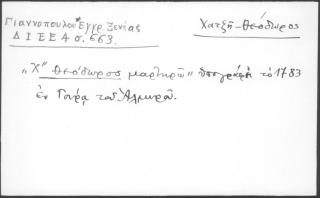 Γιαννοπούλου Ἔγγρ. Ξενίας
Δ Ι Ε Ε 4 σ. 663.
Χατζῆ-Θεόδωρος
„Χ" Θεόδωροσ μαρτηρῶ" ὑπογράφει τὸ 1783
ἐν Γούρᾳ τοῦ Ἁλμυροῦ.